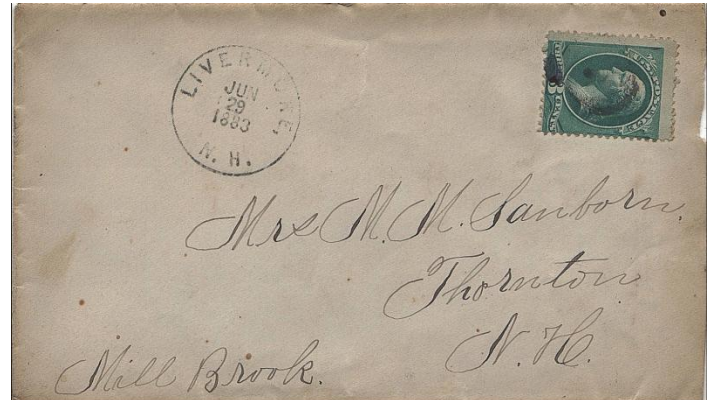 LIVERMORE,
JUN
29
1883
N. H.
Mrs M. M. Sanborn,
Thornton
N. H.
Mill Brook.